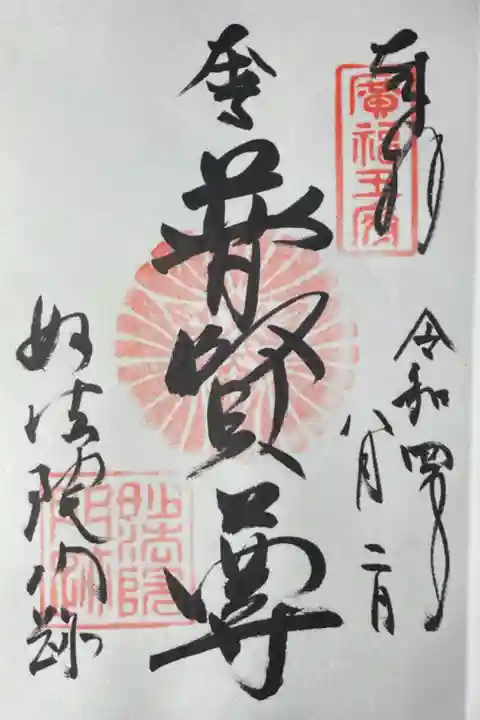 奉拝
廣福王府
令和四年
八月二日
普賢尊
妙法院門跡
妙法院
門跡